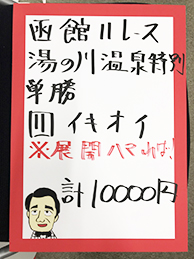 函館11レース
湯の川温泉特別
単勝
11 イキオイ
※展開ハマれば!
計10000円